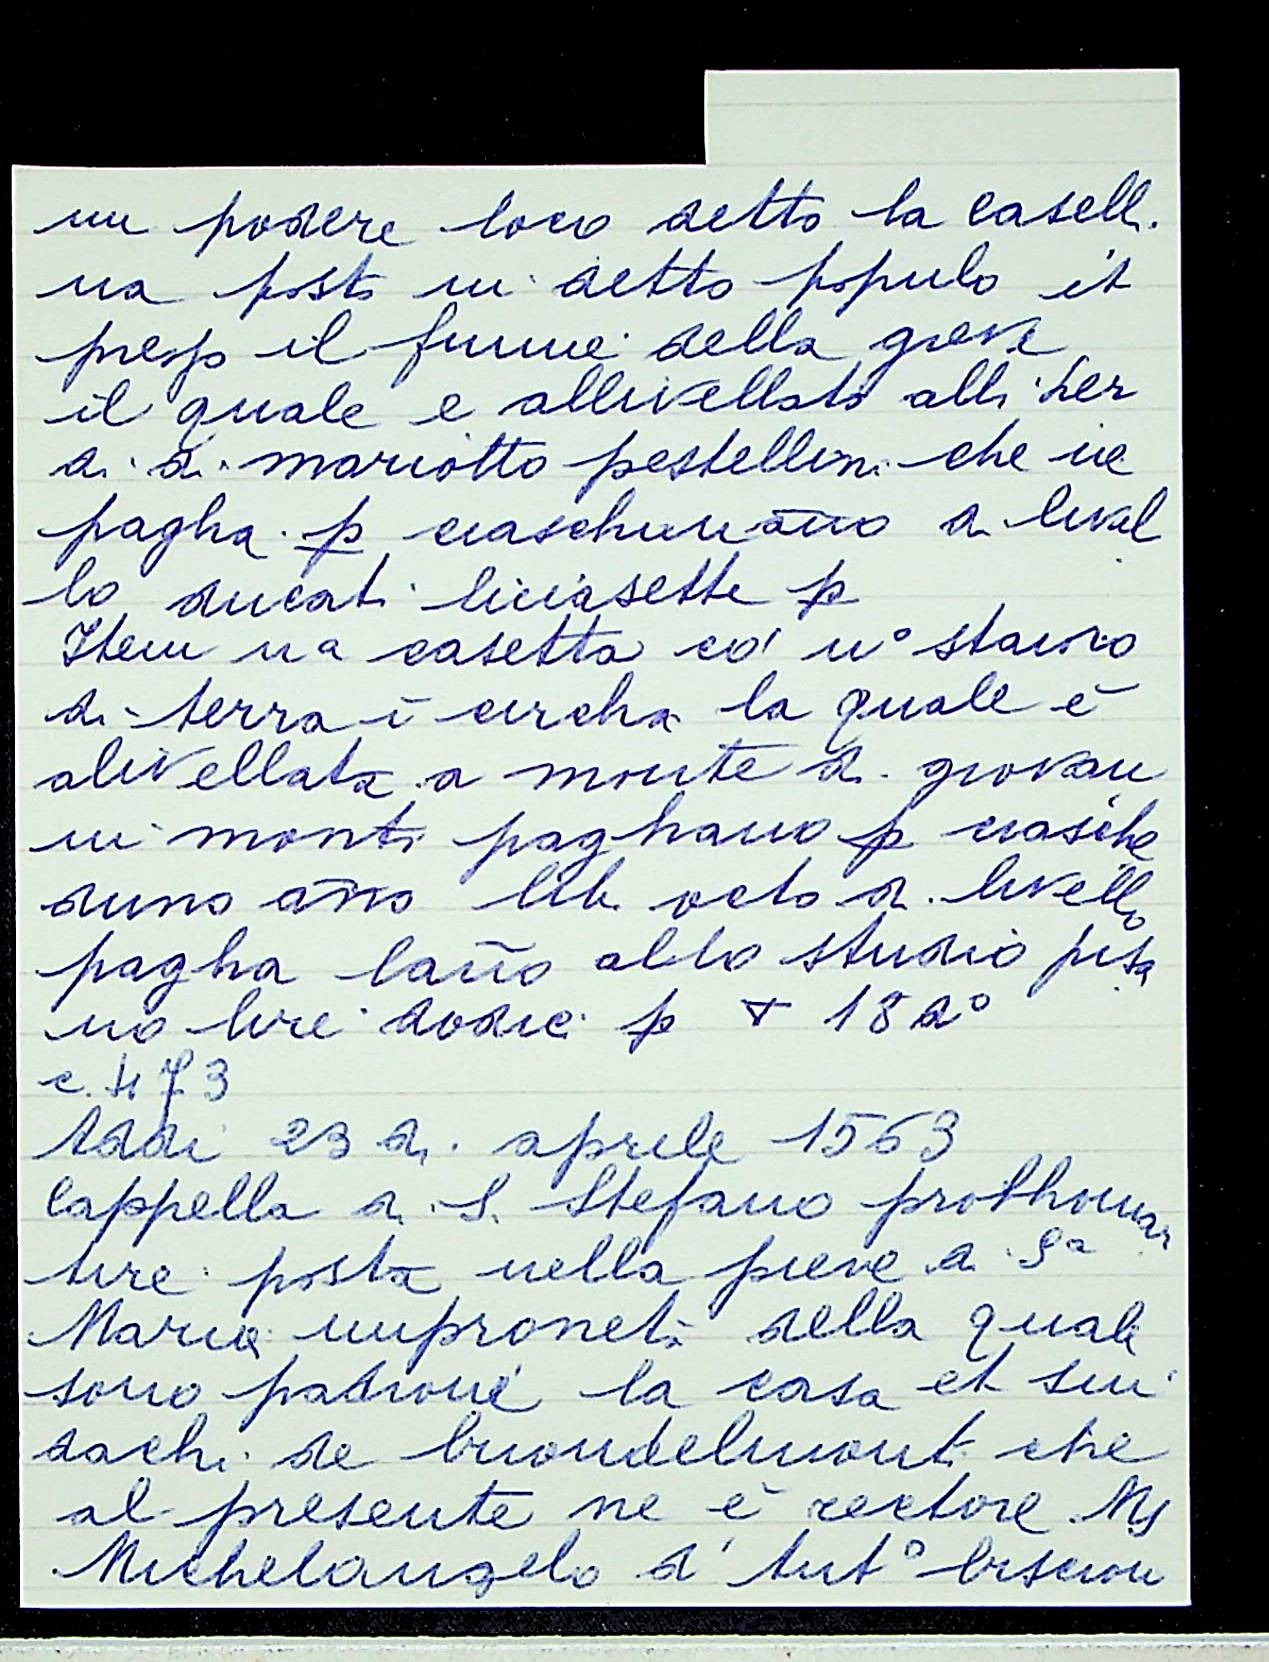 un podere loco detto la casell.
na posto in detto popolo it
presso il fiume della greve
il quale e allivellato alli her
di di mariotto pestellini che ne
pagha p ciaschun año a livel
lo ducati diciasette p
Item na casetta co' n° staioro
di terra ī circha la quale è
alivellata a monte di giovan
ni monti paghano p ciasche
duno año lib. octo di livello
pagha laño allo studio pisa
no lire dodici p ▽ 18 d°
c. 473
Addi 23 di aprile 1563
Cappella di S. Stefano prothomar
tire posta nella pieve di Sª
Maria impruneti della quale
sono patroni la casa et sin
dachi de buondelmonti che
al presente ne è rectore Ms
Michelangelo d' Ant° biscion